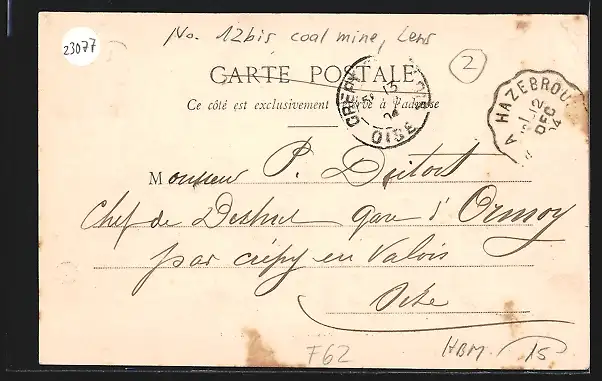 No. 12bis coal mine, Lens
23077
2
CARTE POSTALE
Ce côté est exclusivement réservé à l'adresse
13
04
OISE
A HAZEBROU
12
DEC
04
Monsieur P.
Chef de gare d'Ormoy
par crépy en Valois
Oise
F62
HBM 15